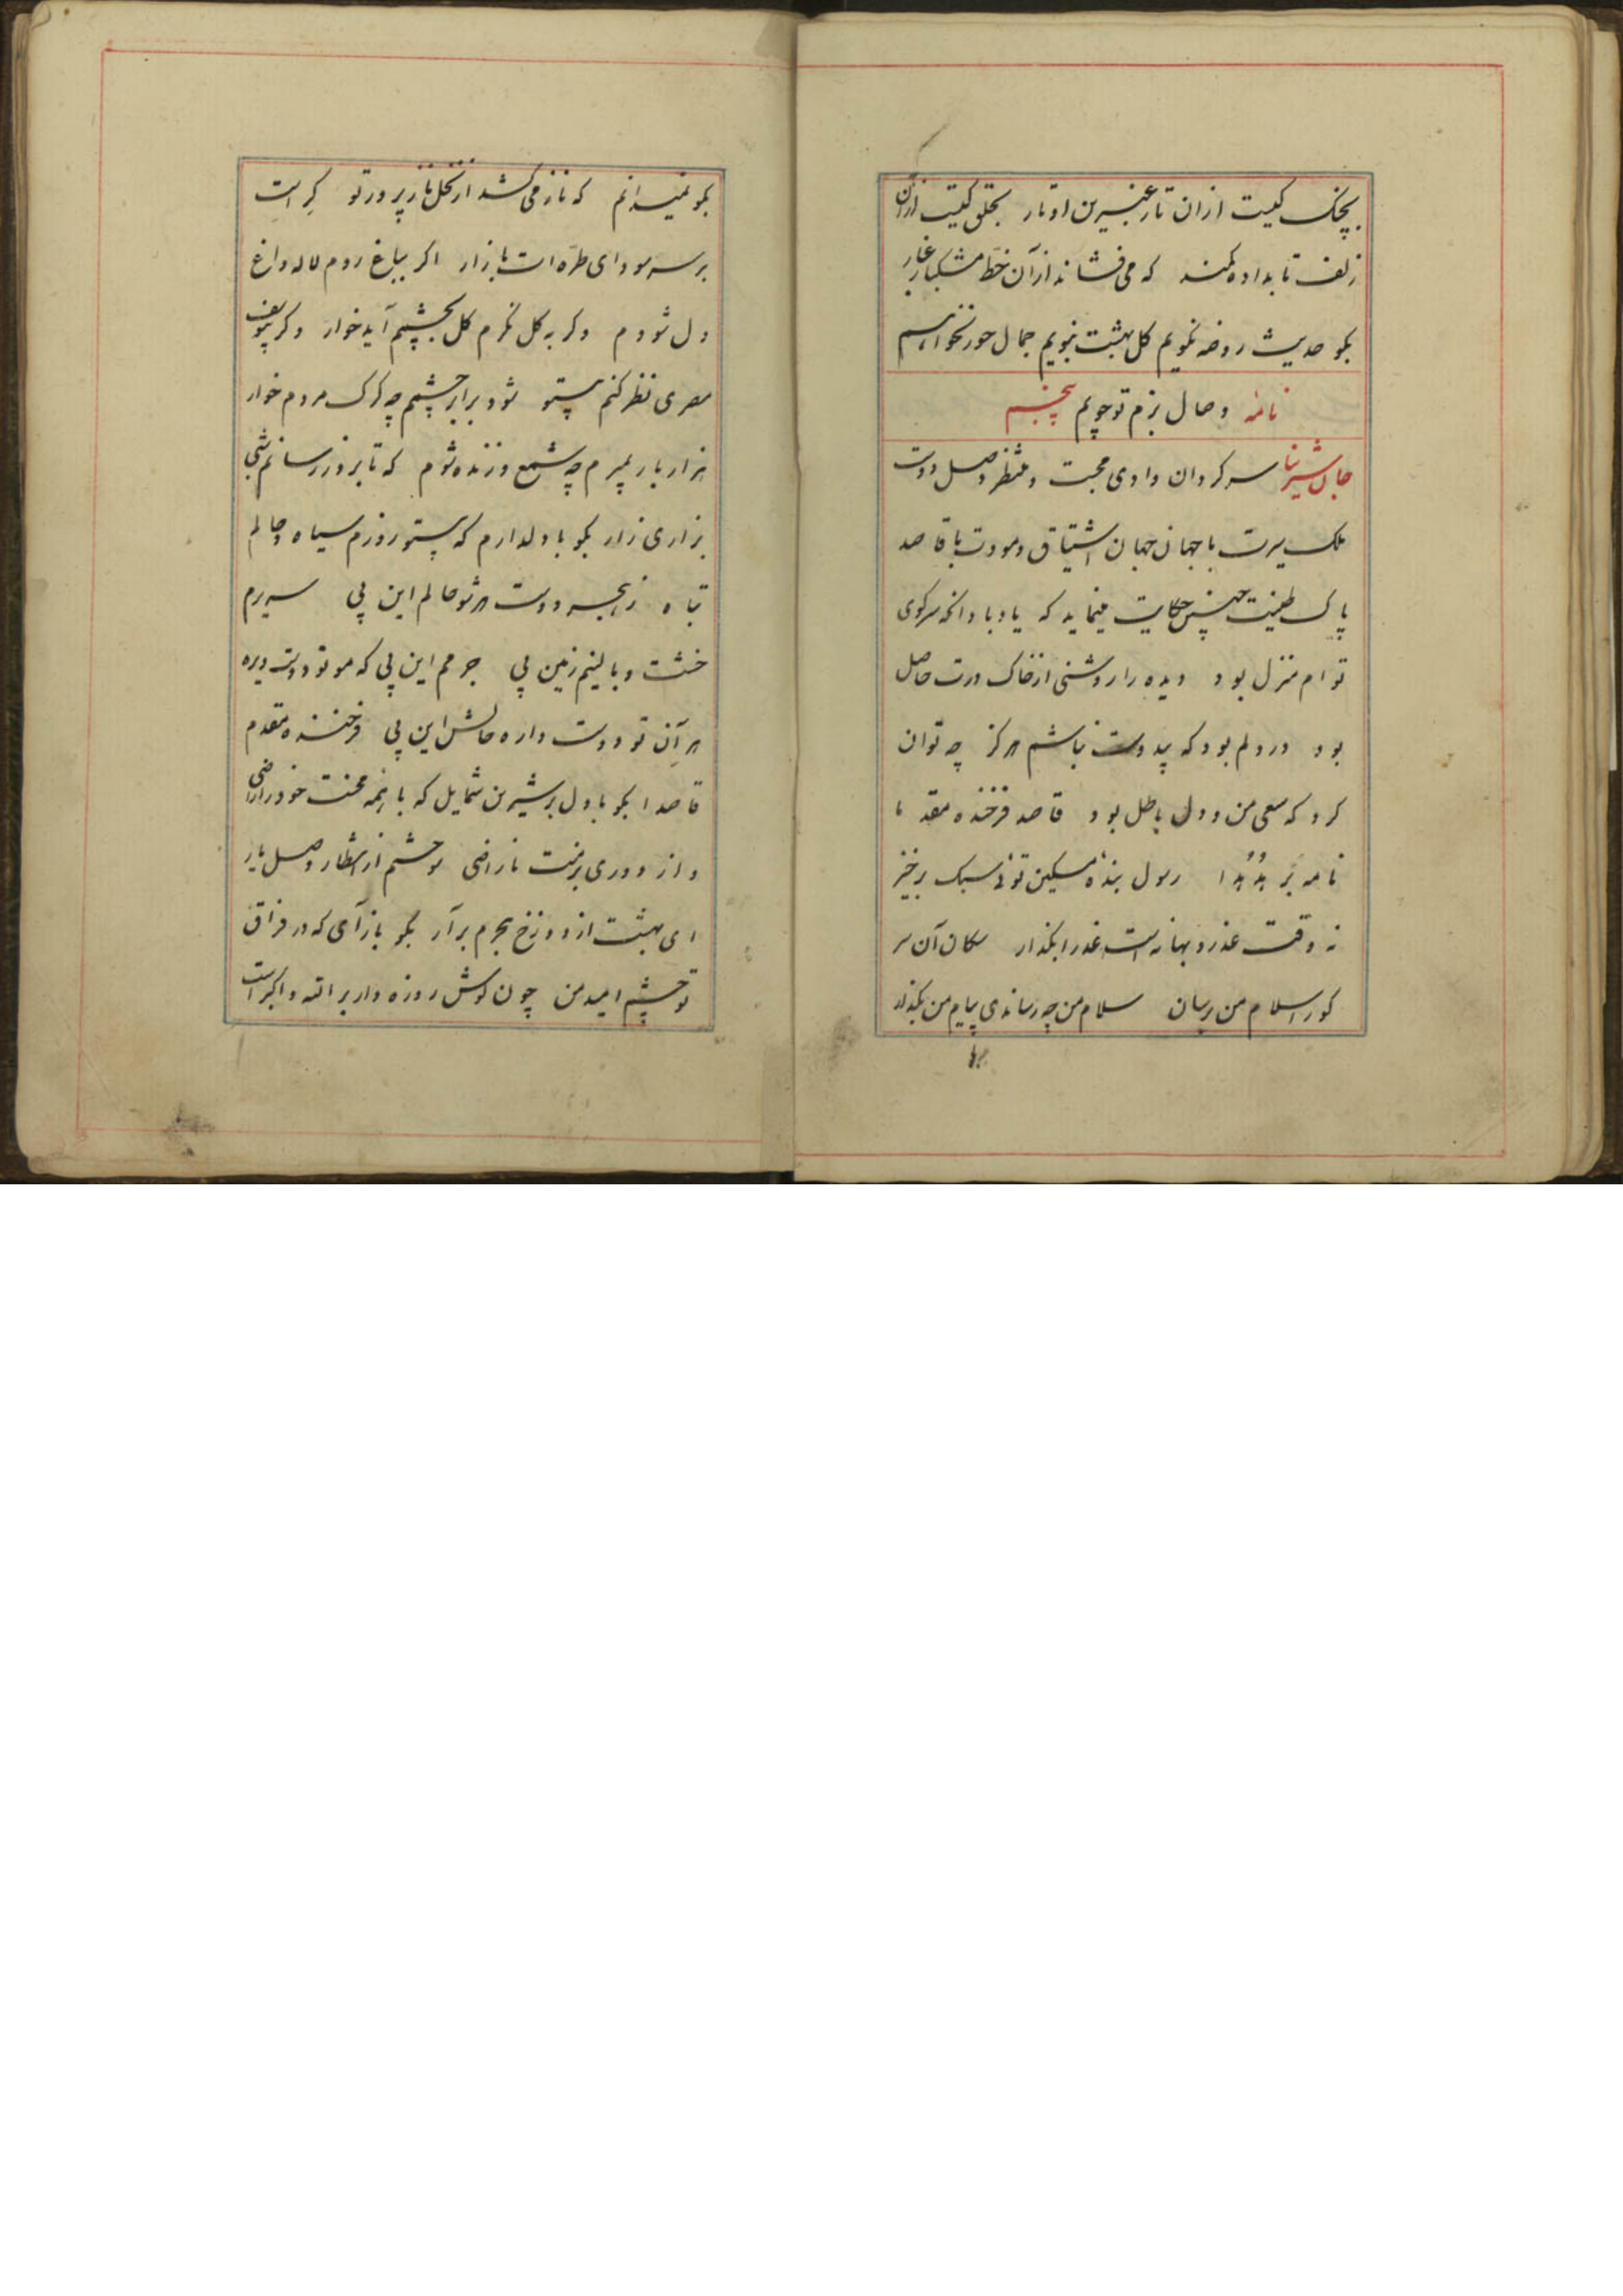 بچنک کیست ازان تار عنبرین اوتار بحلق کیست ازان
زلف تابداده کمند که می فشاند ازآن خط مشکبار غبار
بکو حدیث روضه نکویم کل بهشت نبویم جمال حور نخواهم
نامهٔ وصال بزم تو جویم پنجم
سرکردان وادی محبت و منتظر وصل دوست
ملک سیرت با جهان جهان اشتیاق و مودت با قاصد
پاک طینت چنین حکایت مینماید که یاد باد انکه سرکوی
توام منزل بود دیده را روشنی از خاک درت حاصل
بود در دلم بود که بیدوست نباشم هرکز چه توان
کرد که سعی من و دل باطل بود قاصد فرخنده مقدما
نامه بر هدهدا رسول بندهٔ مسکین توئی سبک برخیز
نه وقت عذر و بهانه است عذر را بکذار سکان آن سر
کو را سلام من برسان سلام من چه رسانیدی پیام من بکذار
بکو نمیدانم که ناز می کشد از نخل ناز پرور تو کراست
بر سر سودای طره ات بازار اکر بباغ روم لاله داغ
دل شودم وکر به کل نکرم کل بچشم آید خوار وکر بیوسف
مصری نظر کنم بیتو شود برابر چشمم چه کرک مردم خوار
هزار بار بمیرم چه شمع و زنده شوم که تا بروز رسانم شبی
بزاری زار بکو با دلدارم که بیتو روزم سیاه و حالم
تباه زهجر دوست هر شو حالم این بی سریرم
خشت و بالینم زمین بی جرمم این بی که مو تو دوست دیرم
هر آن تو دوست داره حالش این بی فرخنده مقدم
قاصدا بکو با دلبر شیرین شمایل که با اینهمه محنت خود راضی
و از دوری بر منت ناراضی سوختم از انتظار وصل یار
ای بهشت از دوزخ هجرم برآر بکو بازآی که در فراق
تو چشم امید من چون کوش روزه دار بر الله و اکبر است